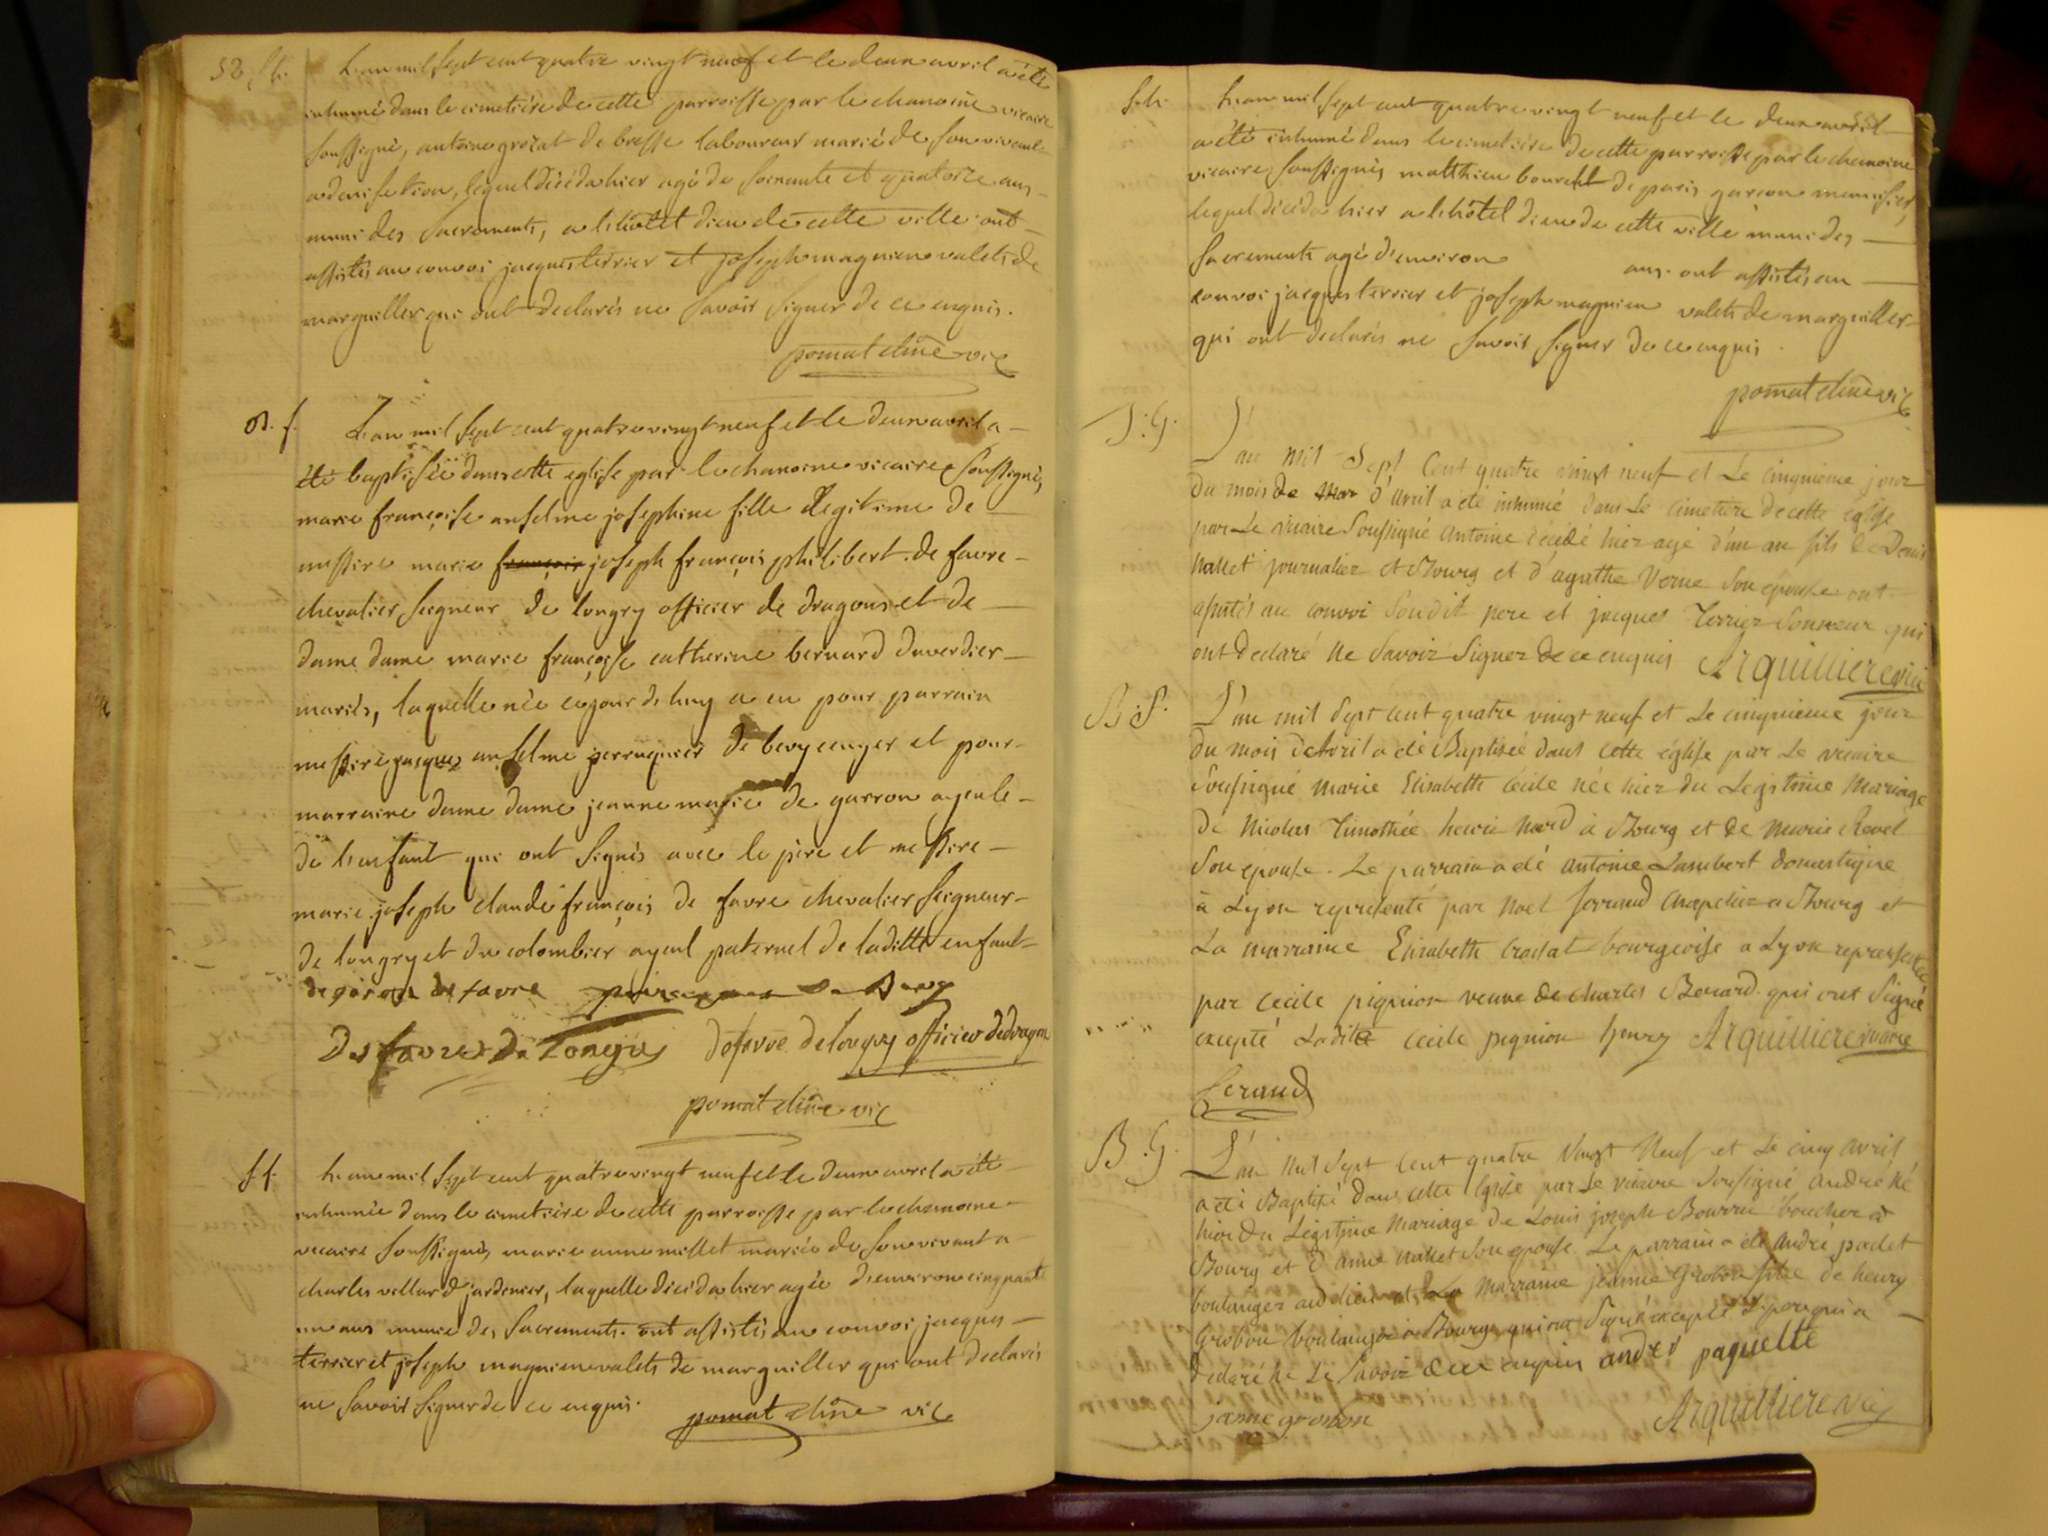 52 S.h. L'an mil sept cent quatre vingt neuf et le deux avril a été
inhumé dans le cimetière de cette parroisse par le chanoine vicaire
soussigné, antoine grozat de bresse laboureur marié de son vivant
a denise tiou, lequel décéda hier agé de soixante et quatorze ans
muni des sacrements, a l'hôtel dieu de cette ville ont
assistés au convoi jacques terrier et joseph magnien valets de
marguiller qui ont declarés ne savoir signer de ce enquis.
pomat chne vic
B. f. L'an mil sept cent quatre vingt neuf et le deux avril a
été baptisée dans cette eglise par le chanoine vicaire soussigné,
marie françoise anselme josephine fille legitime de
messire marie françois joseph françois philibert de favre
chevalier seigneur de longry officier de dragons et de
dame dame marie françoise catherine bernard duverdier
mariés, laquelle née ce jourdhuy a eu pour parrain
messire jacques anselme perruquier de bevy cuyer et pour
marraine dame dame jeanne marie de garron ayeule
de l'enfant qui ont signés avec le père et messire
marie joseph claude françois de favre chevalier seigneur
de longry et du colombier ayeul paternel de laditte enfant
de garon de favre de Bevy
De favre De Longry defavre delongry officier dedragon
pomat chne vic
Sf. L'an mil sept cent quatre vingt neuf et le deux avril a été
inhumée dans le cimetière de cette parroisse par le chanoine
vicaire soussigné, marie anne millet mariée de son vivant a
charles villard jardenier, laquelle décéda hier agée d'environ cinquante
un ans munie des sacrements. ont assistés au convoi jacques
terrier et joseph magnien valets de marguiller qui ont declarés
ne savoir signer de ce enquis. pomat chne vic
S.h. L'an mil sept cent quatre vingt neuf et le deux avril
a été inhumé dans le cimetière de cette parroisse par le chanoine
vicaire soussigné matthieu de paris garçon menuisier,
lequel décéda hier a l'hôtel dieu de cette ville muni des
sacrements agé d'environ ans. ont assistés au
convoi jacques terrier et joseph magnien valets de marguiller
qui ont declarés ne savoir signer de ce enquis.
pomat chne vic
S. G. L'an mil Sept Cent quatre vingt neuf et Le cinquieme jour
Du mois de Mar d'avril a été inhumé dans Le cimetiere de cette eglise
par Le vicaire Soussigné Antoine décédé hier agé d'un an fils de Denis
Nallet journalier à Bourg et d'agathe Verne Son epouse ont
assistés au convoi Soudit pere et jacques Terrier Sonneur qui
ont Declaré Ne Savoir Signer de ce enquis Arquilliere vic
B. f. L'an mil Sept cent quatre vingt neuf et Le cinquieme jour
Du mois d'Avril a été Baptisée dans cette eglise par Le vicaire
Soussigné Marie Elisabeth Cecile née hier du Legitime Mariage
De Nicolas Timothée henri à Bourg et de Marie Revel
Son epouse. Le parrain a été antoine Lambert domestique
à Lyon representé par Noel ferraud Chapelier a Bourg et
La marraine Elisabeth Crozat bourgeoise a Lyon representée
par Cecile pignion veuve de Charles Bouard qui ont Signé
excepté Ladite Cecile pignion henry Arquilliere vicaire
feraud
B. G. L'an Mil Sept Cent quatre Vingt Neuf et Le cinq avril
a été Baptisé Dans cette Eglise par Le vicaire Soussigné andré né
hier du Legitime Mariage de Louis joseph Bourrie boucher à
Bourg et d'anne Nallet Son epouse. Le parrain a été André paclet
boulanger audit lieu et La Marraine jeanne Grobon fille de henry
Grobon boulanger à Bourg qui ont Signé excepté Le pere qui a
Declaré Ne Le Savoir de ce enquis andré paquelte
janne grobon Arquilliere vic